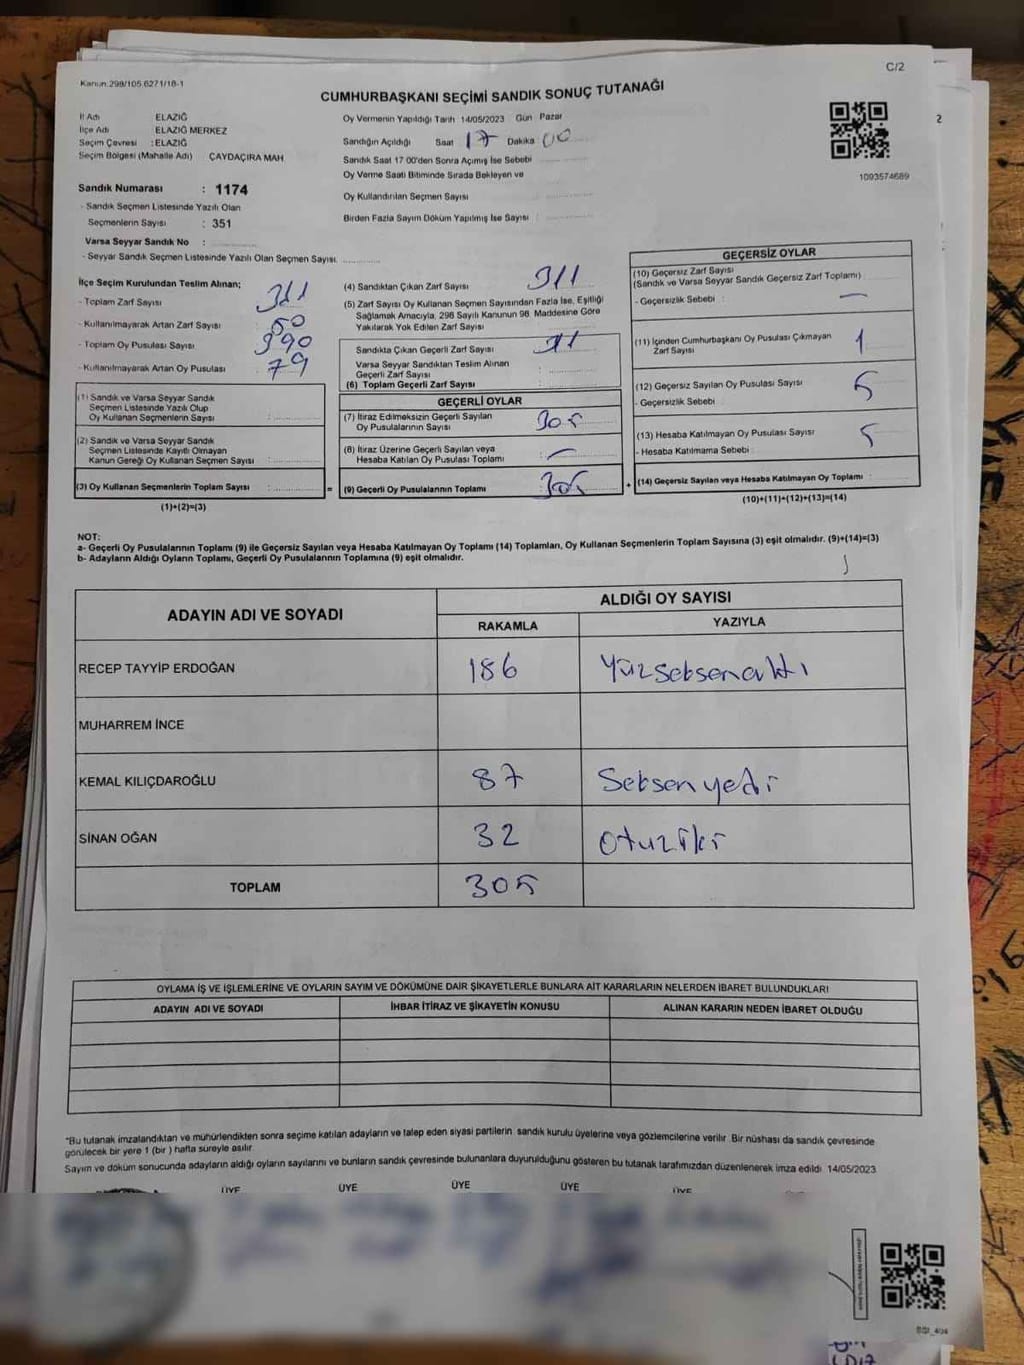 C/2
Kanun.298/105.6271/18-1
CUMHURBAŞKANI SEÇİMİ SANDIK SONUÇ TUTANAĞI
İl Adı ELAZIĞ
İlçe Adı ELAZIĞ MERKEZ
Seçim Çevresi : ELAZIĞ
Seçim Bölgesi (Mahalle Adı) ÇAYDAÇIRA MAH
Sandık Numarası : 1174
- Sandık Seçmen Listesinde Yazılı Olan
Seçmenlerin Sayısı : 351
Varsa Seyyar Sandık No :
- Seyyar Sandık Seçmen Listesinde Yazılı Olan Seçmen Sayısı
Oy Vermenin Yapıldığı Tarih 14/05/2023 Gün Pazar
Sandığın Açıldığı Saat 17 Dakika 00
Sandık Saat 17 00'den Sonra Açımış İse Sebebi
Oy Verme Saati Bitiminde Sırada Bekleyen ve
Oy Kullandırılan Seçmen Sayısı
Birden Fazla Sayım Döküm Yapılmış İse Sayısı
1093574689
2
İlçe Seçim Kurulundan Teslim Alınan;
- Toplam Zarf Sayısı
- Kullanılmayarak Artan Zarf Sayısı : 50
- Toplam Oy Pusulası Sayısı 390
- Kullanılmayarak Artan Oy Pusulası 79
(1) Sandık ve Varsa Seyyar Sandık
Seçmen Listesinde Yazılı Olup
Oy Kullanan Seçmenlerin Sayısı :
(2) Sandık ve Varsa Seyyar Sandık
Seçmen Listesinde Kayıtlı Olmayan
Kanun Gereği Oy Kullanan Seçmen Sayısı :
(3) Oy Kullanan Seçmenlerin Toplam Sayısı : =
(1)+(2)=(3)
(4) Sandıktan Çıkan Zarf Sayısı 311
(5) Zarf Sayısı Oy Kullanan Seçmen Sayısından Fazla İse, Eşitliği
Sağlamak Amacıyla, 298 Sayılı Kanunun 98. Maddesine Göre
Yakılarak Yok Edilen Zarf Sayısı
Sandıkta Çıkan Geçerli Zarf Sayısı
Varsa Seyyar Sandıktan Teslim Alınan
Geçerli Zarf Sayısı
(6) Toplam Geçerli Zarf Sayısı
GEÇERLİ OYLAR
(7) İtiraz Edilmeksizin Geçerli Sayılan
Oy Pusulalarının Sayısı 305
(8) İtiraz Üzerine Geçerli Sayılan veya
Hesaba Katılan Oy Pusulası Toplamı : —
(9) Geçerli Oy Pusulalarının Toplamı 305 +
GEÇERSİZ OYLAR
(10) Geçersiz Zarf Sayısı
(Sandık ve Varsa Seyyar Sandık Geçersiz Zarf Toplamı)
- Geçersizlik Sebebi : —
(11) İçinden Cumhurbaşkanı Oy Pusulası Çıkmayan
Zarf Sayısı 1
(12) Geçersiz Sayılan Oy Pusulası Sayısı 5
- Geçersizlik Sebebi
(13) Hesaba Katılmayan Oy Pusulası Sayısı 5
- Hesaba Katılmama Sebebi
(14) Geçersiz Sayılan veya Hesaba Katılmayan Oy Toplamı
(10)+(11)+(12)+(13)=(14)
NOT:
a- Geçerli Oy Pusulalarının Toplamı (9) ile Geçersiz Sayılan veya Hesaba Katılmayan Oy Toplamı (14) Toplamları, Oy Kullanan Seçmenlerin Toplam Sayısına (3) eşit olmalıdır. (9)+(14)=(3)
b- Adayların Aldığı Oyların Toplamı, Geçerli Oy Pusulalarının Toplamına (9) eşit olmalıdır.
ADAYIN ADI VE SOYADI ALDIĞI OY SAYISI
RAKAMLA YAZIYLA
RECEP TAYYİP ERDOĞAN 186 Yüzseksenaltı
MUHARREM İNCE
KEMAL KILIÇDAROĞLU 87 Seksenyedi
SİNAN OĞAN 32 Otuziki
TOPLAM 305
OYLAMA İŞ VE İŞLEMLERİNE VE OYLARIN SAYIM VE DÖKÜMÜNE DAİR ŞİKAYETLERLE BUNLARA AİT KARARLARIN NELERDEN İBARET BULUNDUKLARI
ADAYIN ADI VE SOYADI İHBAR İTİRAZ VE ŞİKAYETİN KONUSU ALINAN KARARIN NEDEN İBARET OLDUĞU
"Bu tutanak imzalandıktan ve mühürlendikten sonra seçime katılan adayların ve talep eden siyasi partilerin. sandık kurulu üyelerine veya gözlemcilerine verilir. Bir nüshası da sandık çevresinde
görülecek bir yere 1 (bir) hafta süreyle asılır.
Sayım ve döküm sonucunda adayların aldığı oyların sayılarını ve bunların sandık çevresinde bulunanlara duyurulduğunu gösteren bu tutanak tarafımızdan düzenlenerek imza edildi. 14/05/2023
ÜYE ÜYE ÜYE ÜYE ÜYE